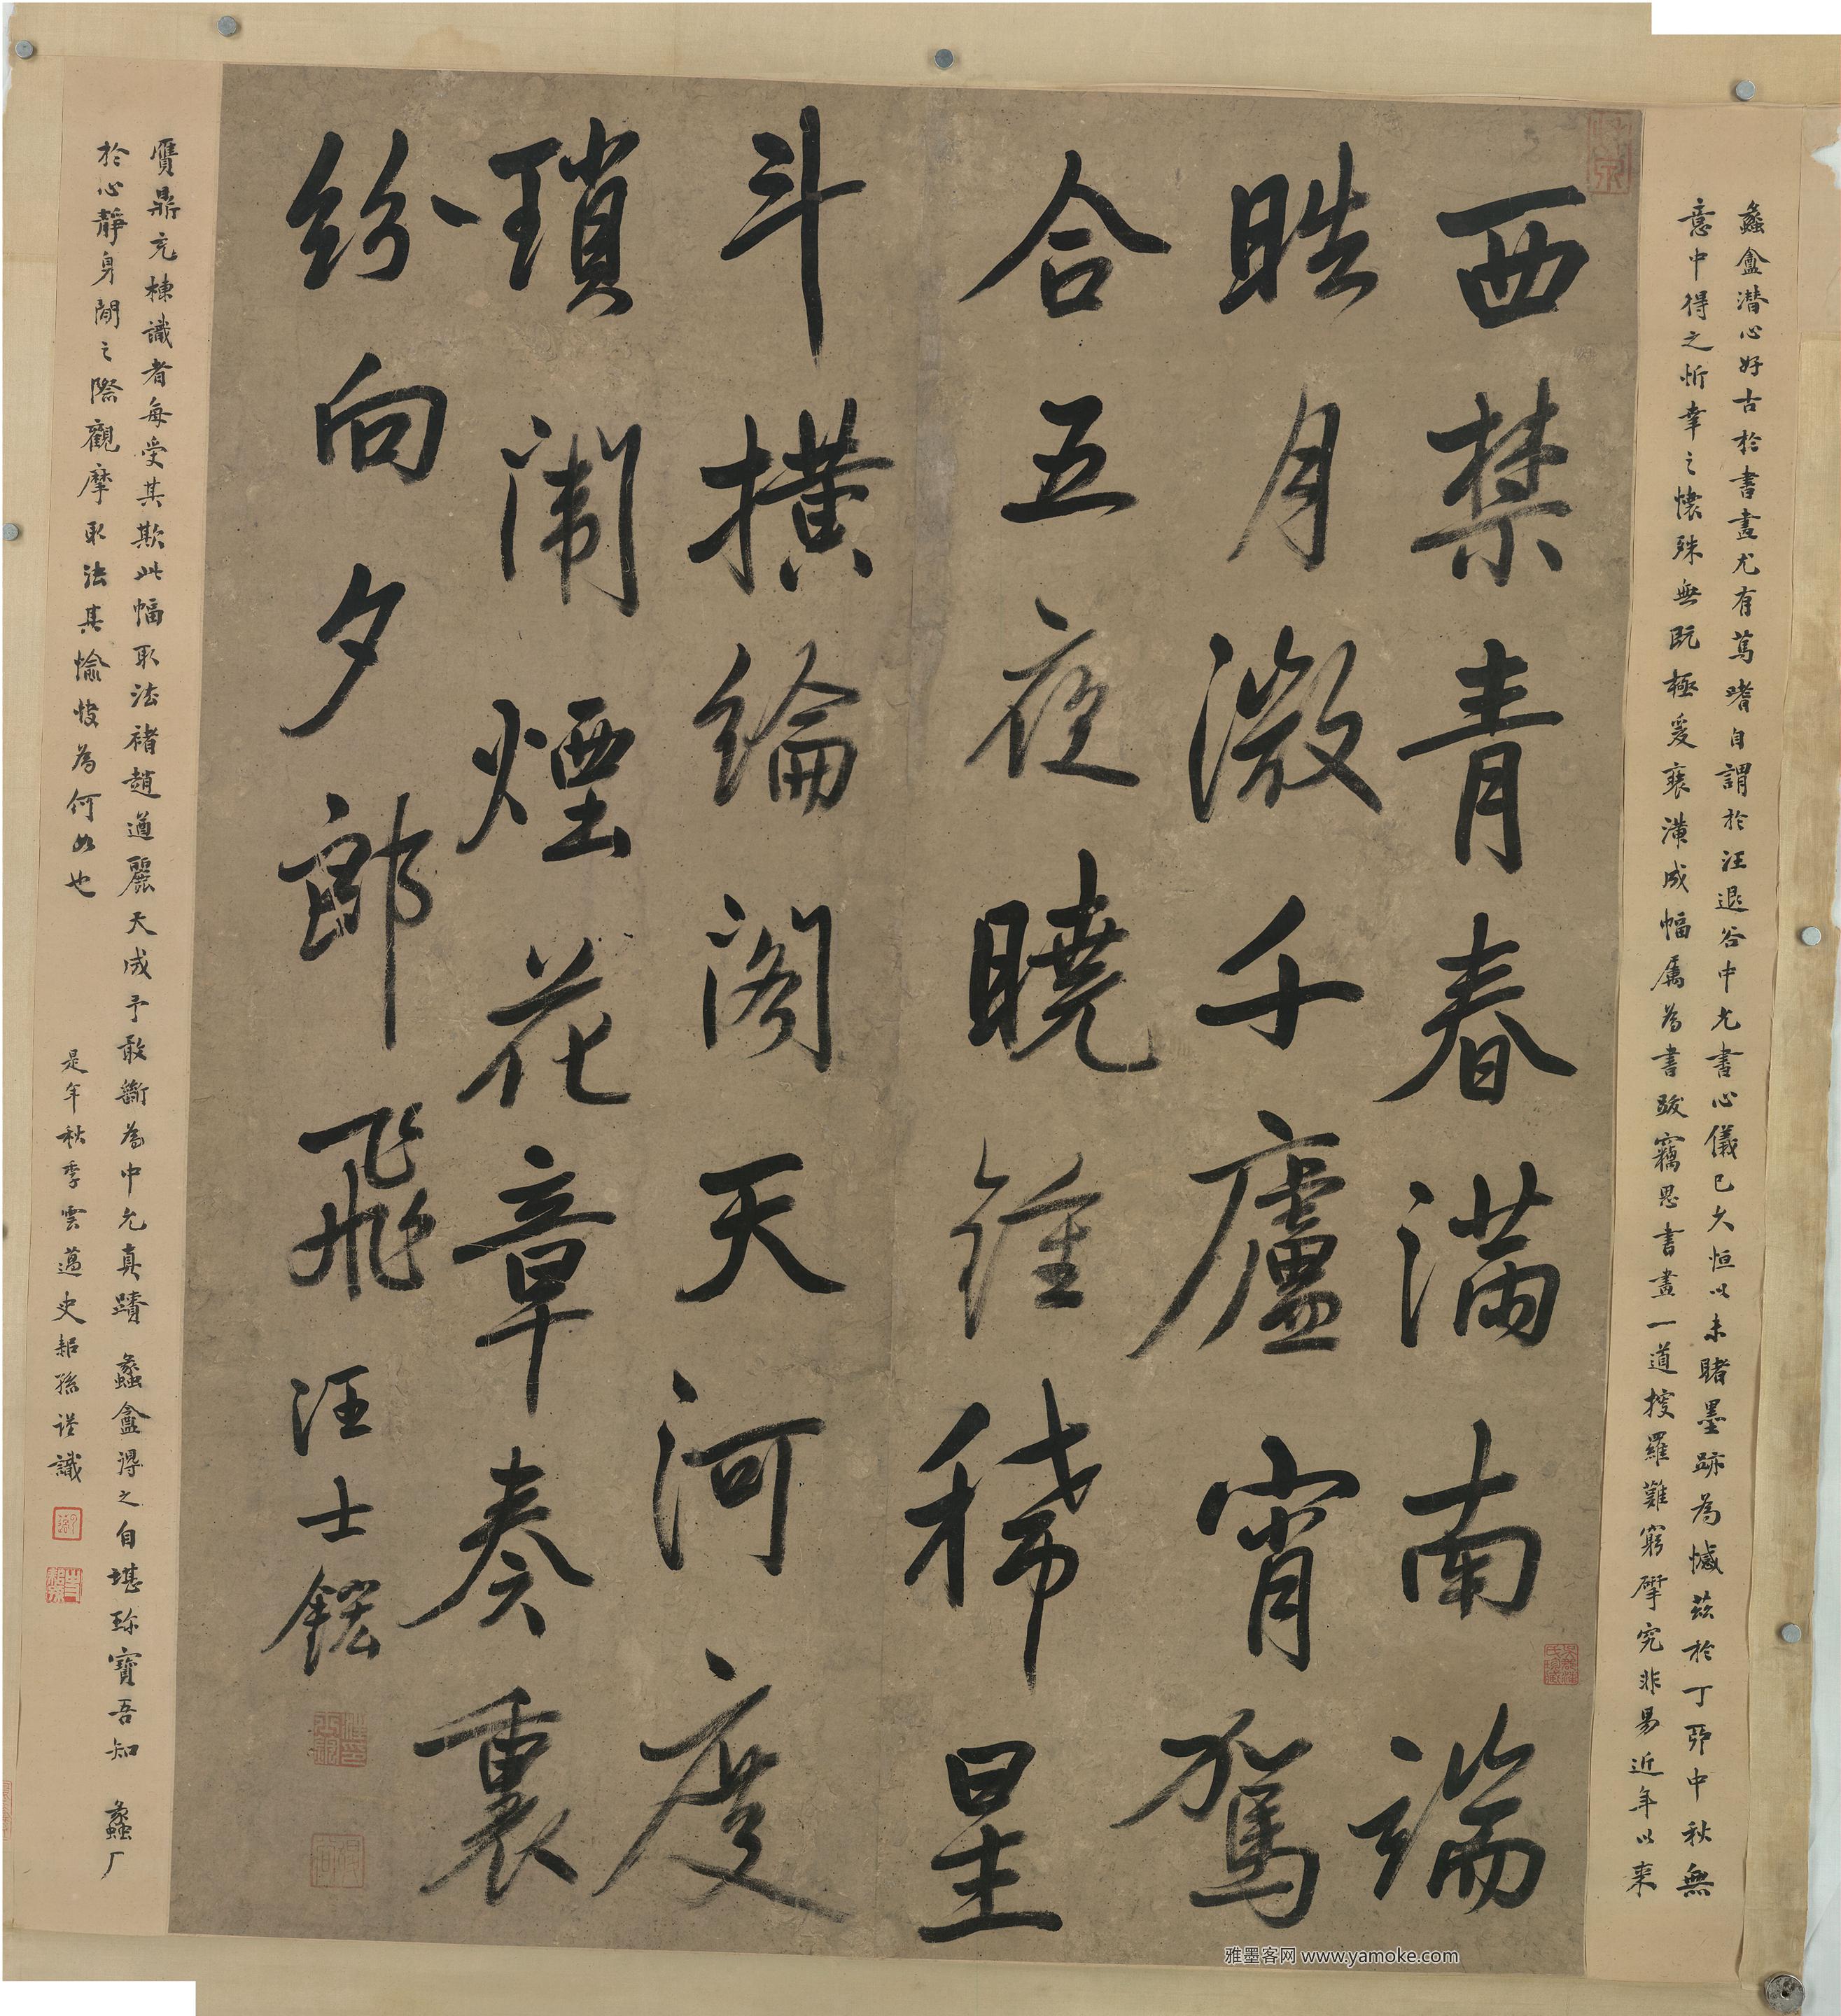 蠡盦潛心好古於書畫尤有篤嗜自謂於汪退谷中允書心儀已久恒以未睹墨跡為憾茲於丁卯中秋無
意中得之忻幸之懷殊無既極爰裝潢成幅屬為書跋竊思書畫一道搜羅難窮擘究非易近年以來
西禁青春滿南端
皓月澂千廬宵駕
合五夜曉鍾稀星
斗橫綸閣天河度
瑣闈煙花章奏裏
紛向夕郎飛
汪士鋐
贗鼎充棟識者每受其欺此幅取法褚趙遒麗天成予敢斷為中允真蹟蠡盦得之自堪珍寶吾知蠡厂
於心靜身閒之際觀摩取法其愉快為何如也
是年秋季雲邁史 孫謹識
雅墨客网 www.yamoke.com